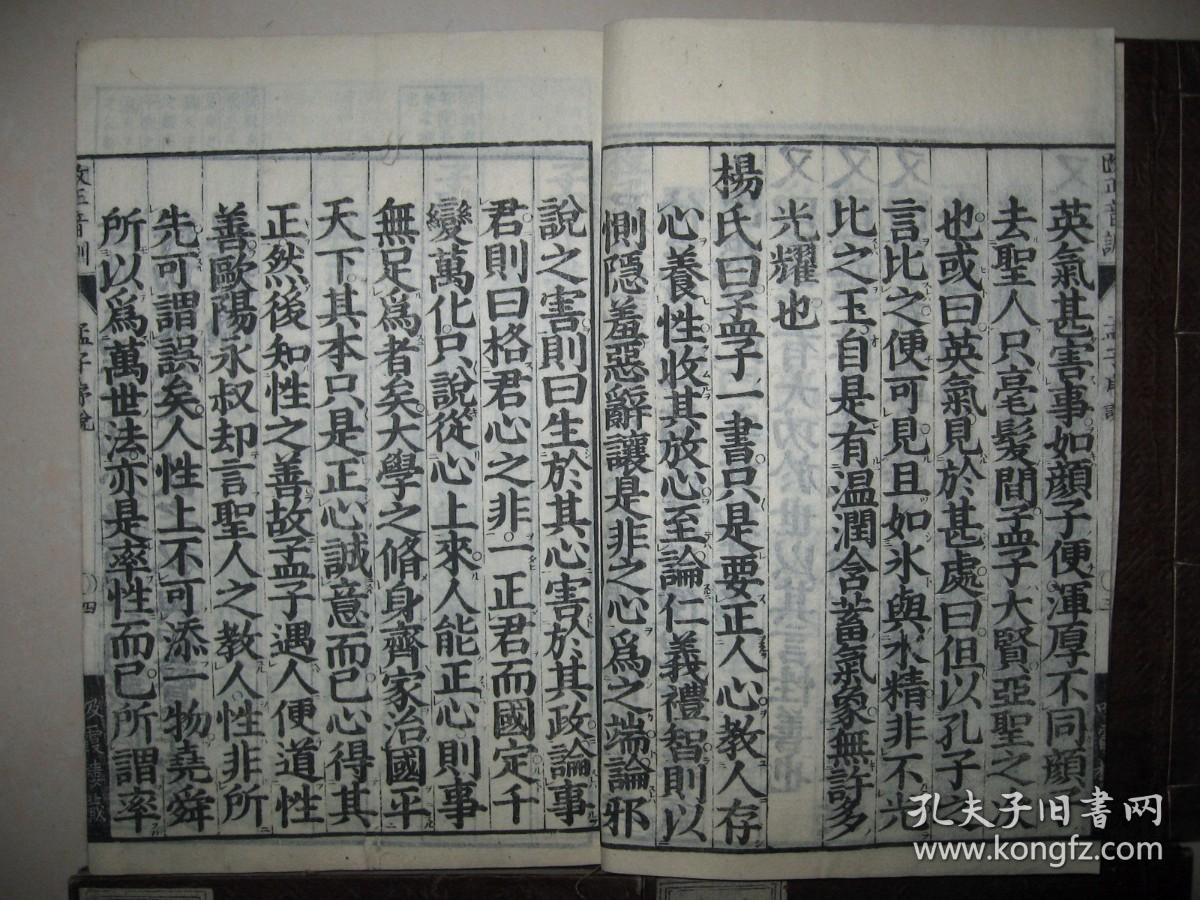 英氣甚害事如顏子便渾厚不同顏子
去聖人只毫髮間孟子大賢亞聖之次
也或曰英氣見於甚處曰但以孔子之
言比之便可見且如氷與水精非不光
比之玉自是有温潤含蓄氣象無許多
光耀也
楊氏曰孟子一書只是要正人心教人存
心養性收其放心至論仁義禮智則以
惻隱羞惡辭讓是非之心爲之端論邪
說之害則曰生於其心害於其政論事
君則曰格君心之非一正君而國定千
變萬化只說從心上來人能正心則事
無足爲者矣大學之脩身齊家治國平
天下其本只是正心誠意而已心得其
正然後知性之善故孟子遇人便道性
善歐陽永叔却言聖人之教人性非所
先可謂誤矣人性上不可添一物堯舜
所以爲萬世法亦是率性而已所謂率
改正音訓 孟子序說 四
孔夫子旧书网
www.kongfz.com